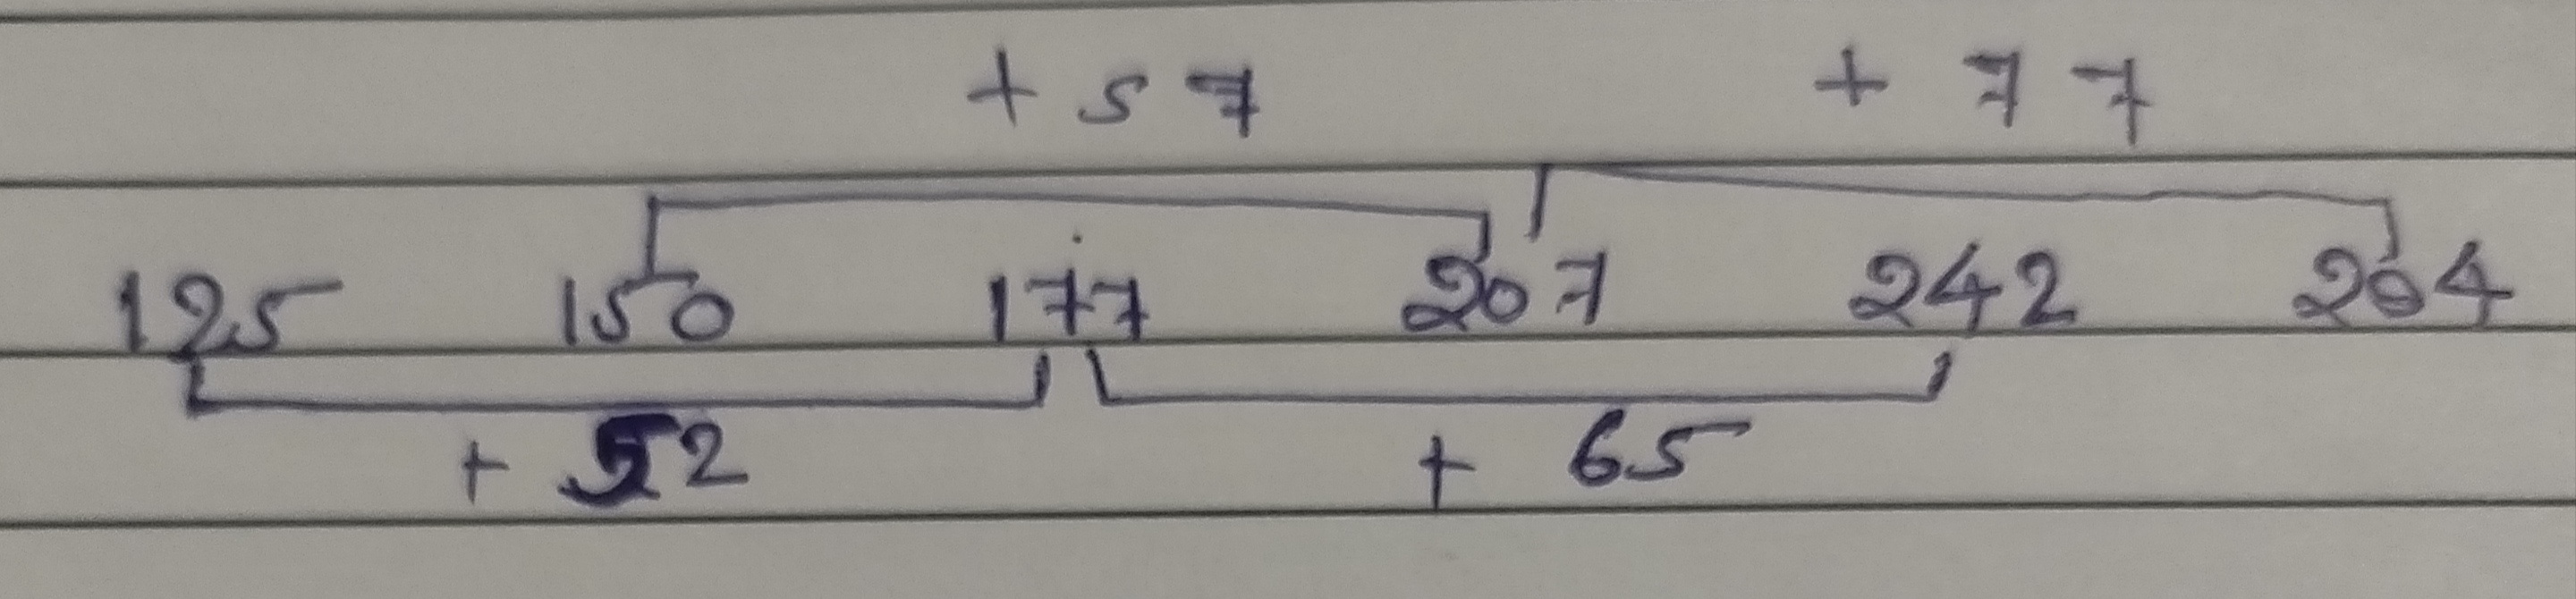 + 57 + 77
125 150 177 207 242 284
+ 52 + 65